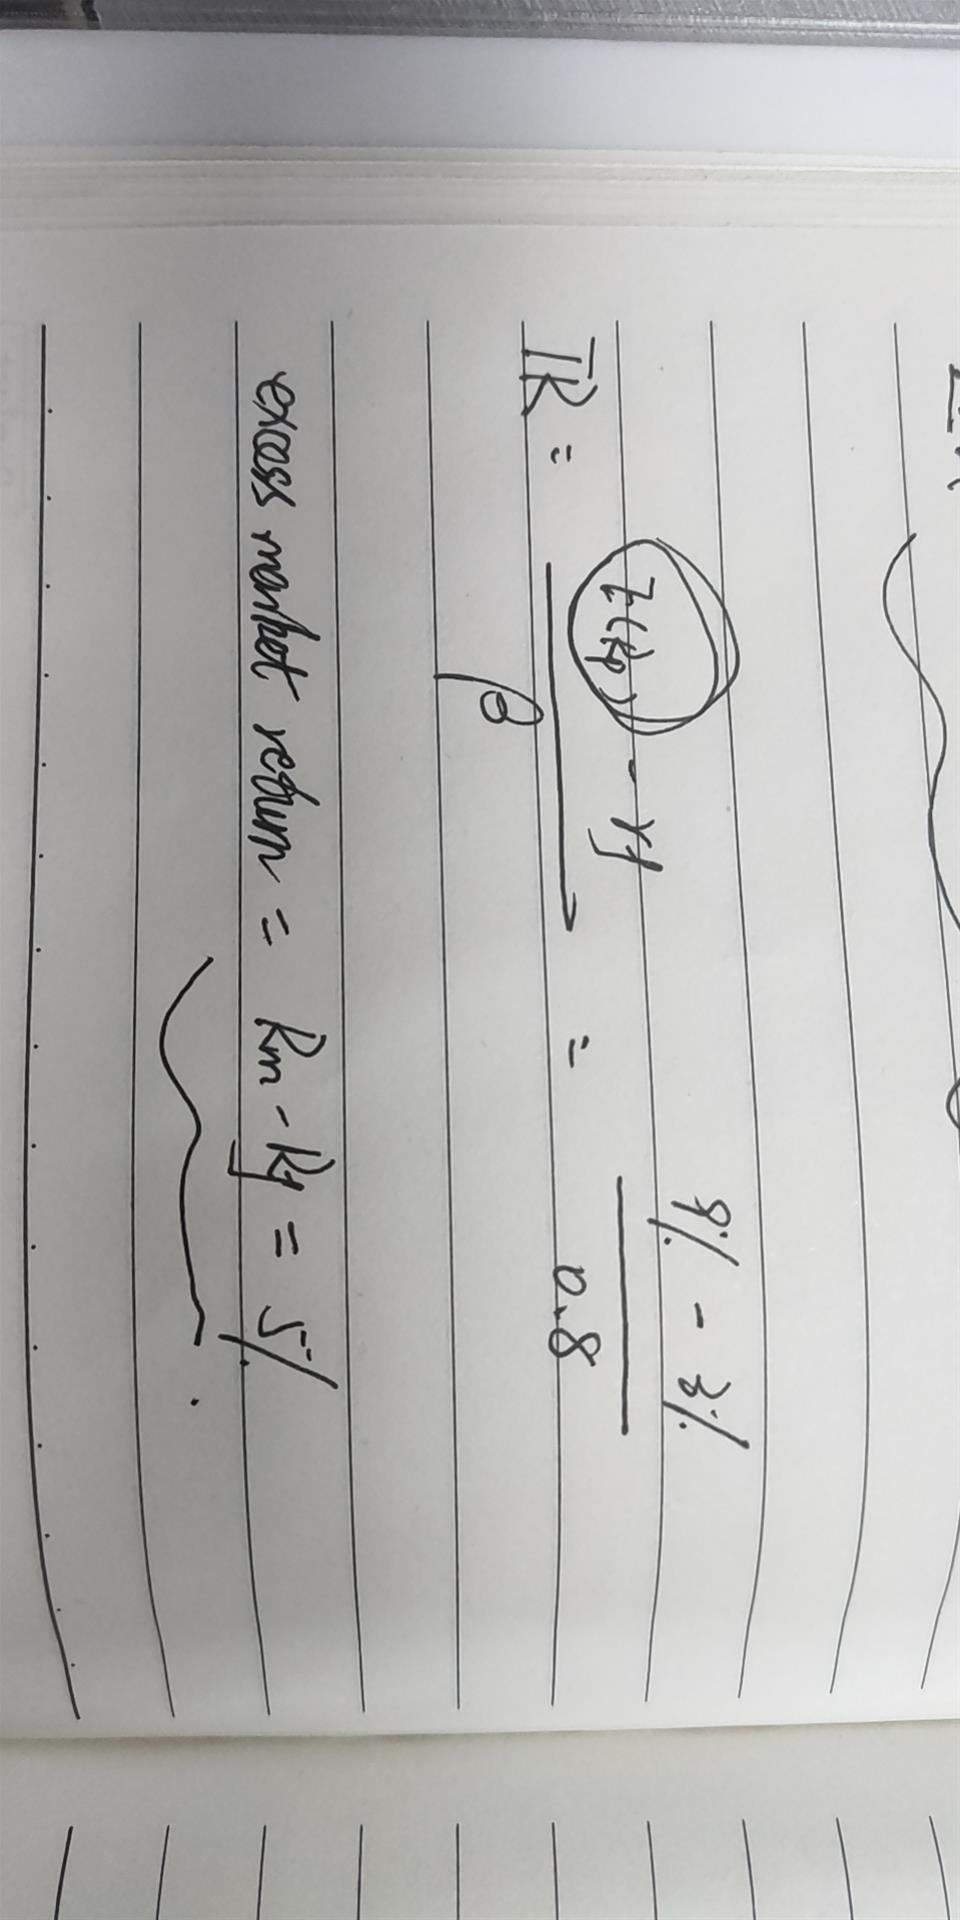 TR = E(Rp) - rf / β = 8% - 3% / 0.8
excess market return = Rm - Rf = 5%.